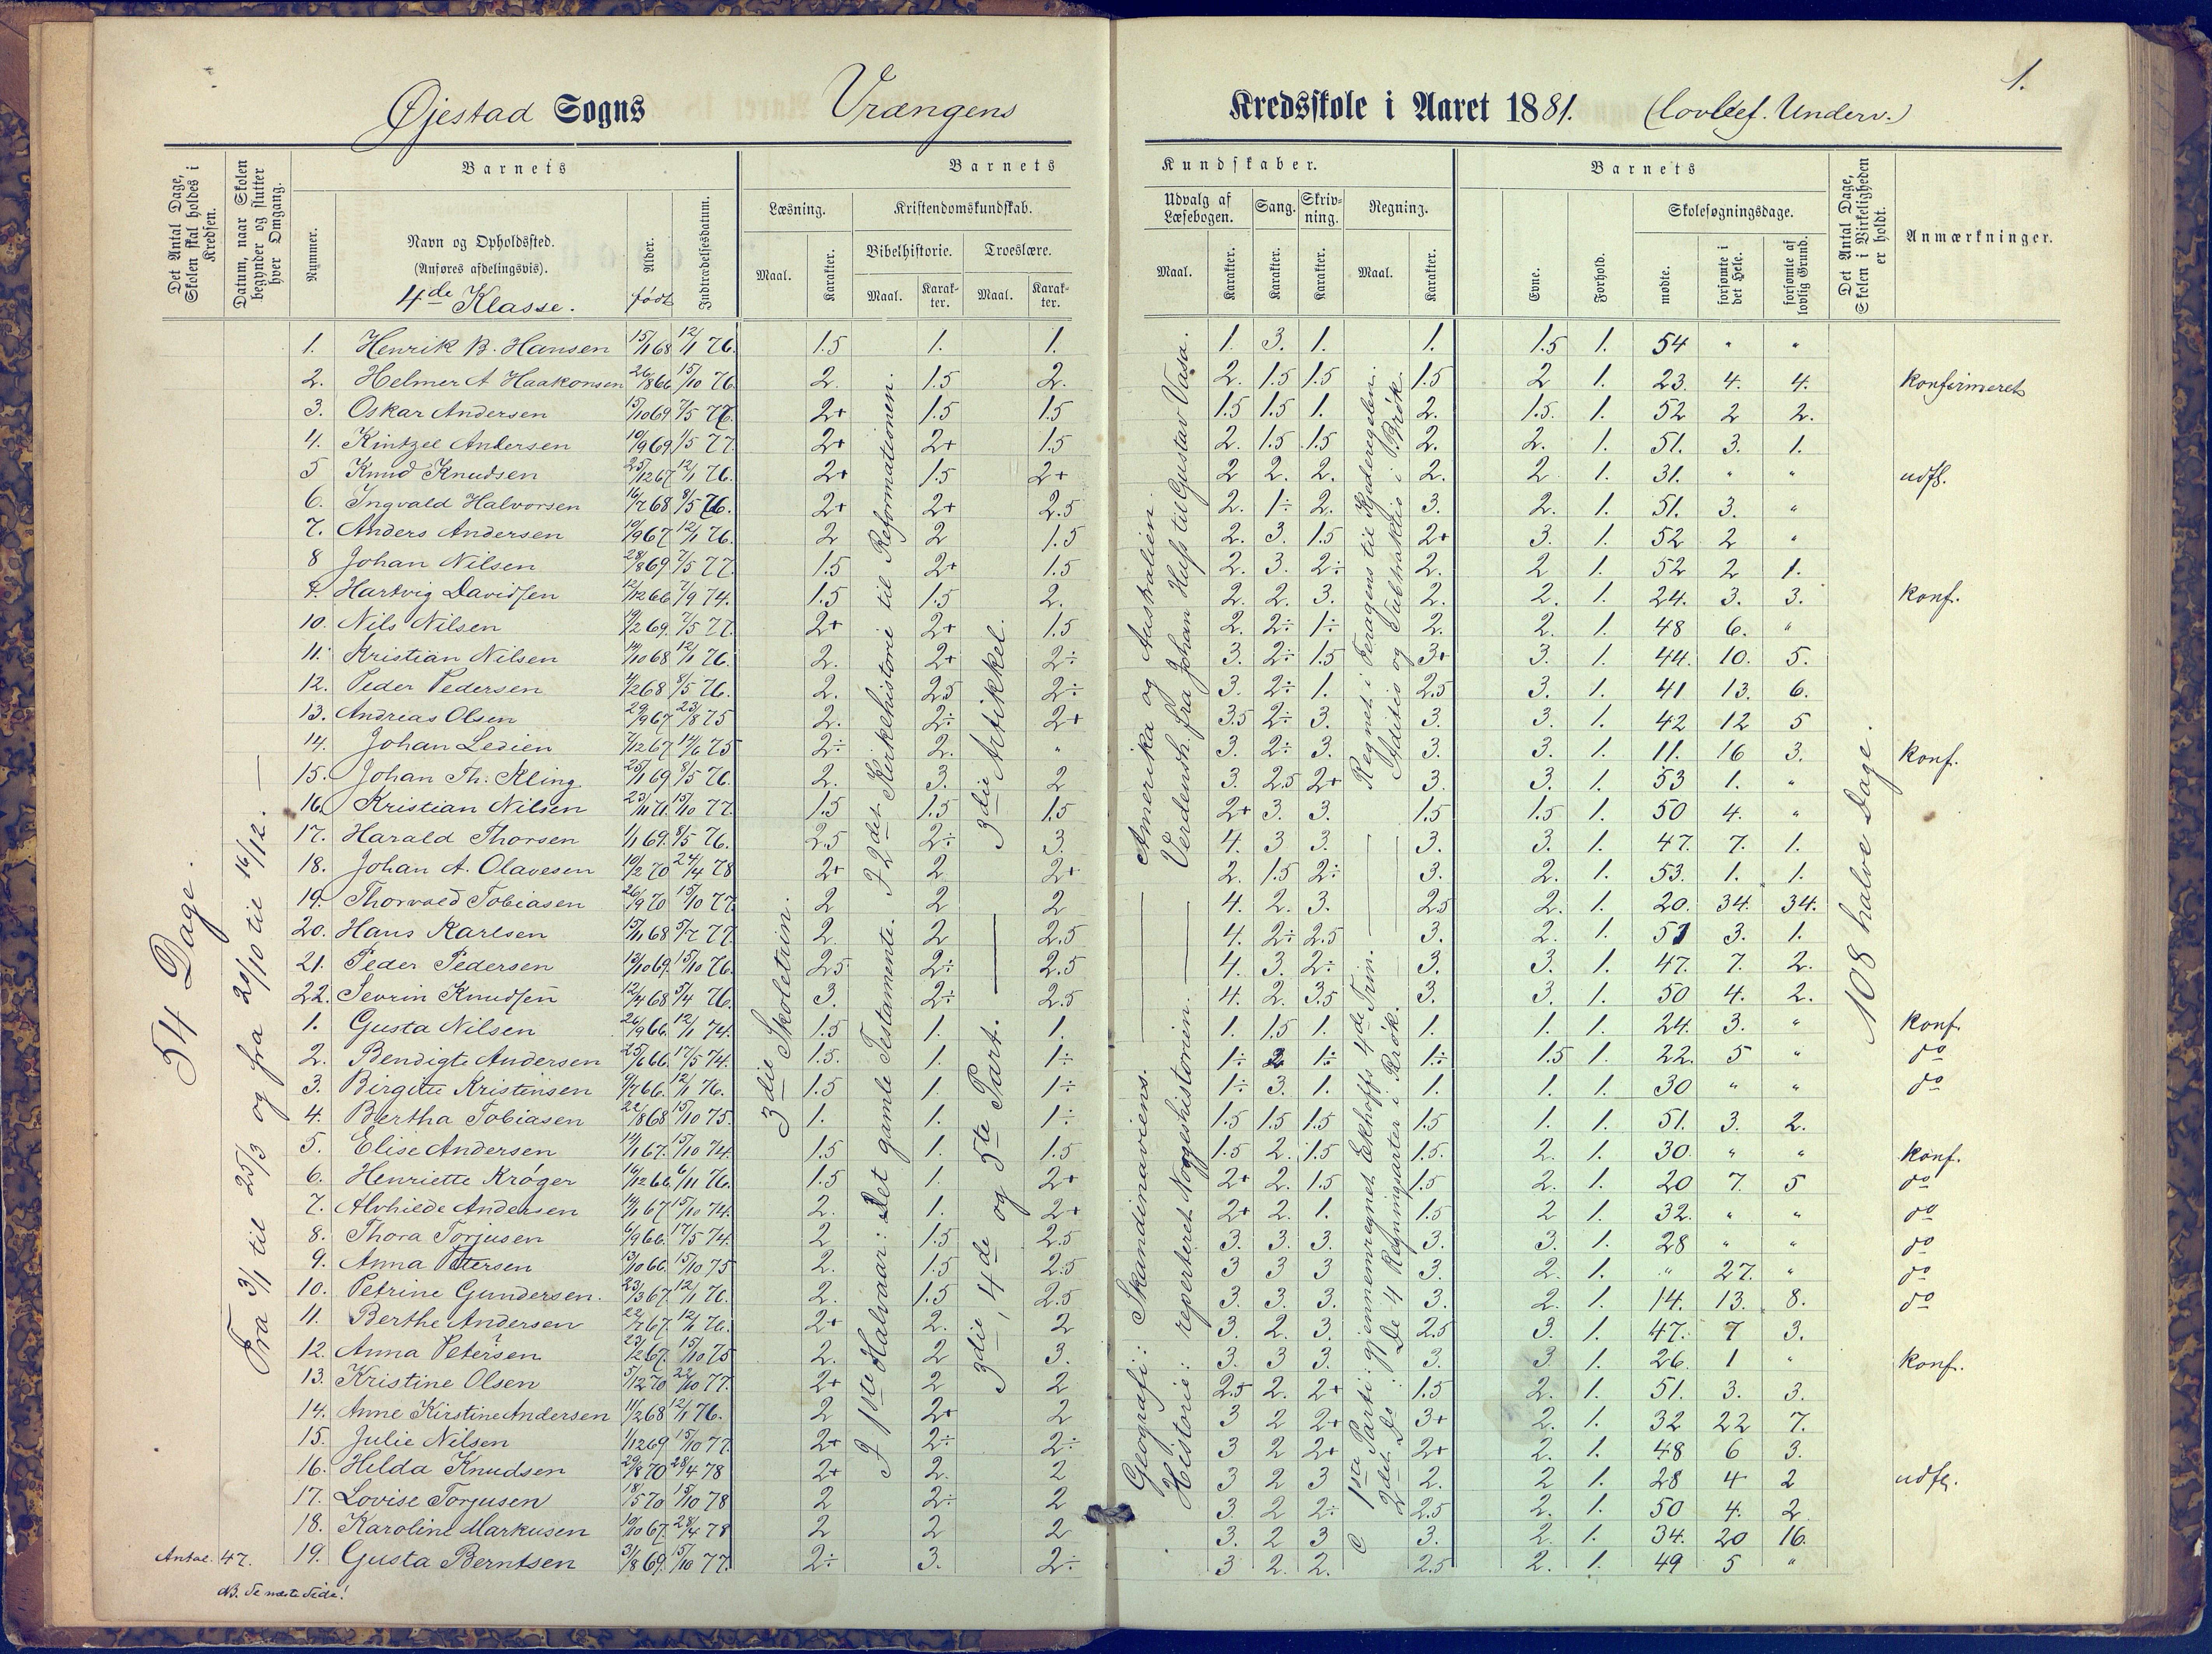 1.
Øjestad Sogns Vrængens Kredsskole i Aaret 1881. (lovbef. Underv.)
Det Antal Dage, Skolen skal holdes i Kredsen.
Datum, naar Skolen begynder og slutter hver Omgang.
Barnets
Nummer.
Navn og Opholdssted.
(Anføres afdelingsvis).
4de Klasse.
Alder.
født
Indtrædelsesdatum.
Barnets Kundskaber.
Læsning.
Maal. Karakter.
Kristendomskundskab.
Bibelhistorie. Troeslære.
Maal. Karakter. Maal. Karakter.
Udvalg af Læsebogen.
Maal. Karakter.
Sang.
Karakter.
Skrivning.
Karakter.
Regning.
Maal. Karakter.
Barnets
Evne. Forhold.
Skolesøgningsdage.
mødte. forsømte i det Hele. forsømte af lovlig Grund.
Det Antal Dage, Skolen i Virkeligheden er holdt.
Anmærkninger.
54 Dage.
Fra 3/1 til 25/3 og fra 20/10 til 16/12.
3die Skoletrin.
I 1ste Halvaar: Det gamle Testamente. I 2det Kirkehistorie til Reformationen.
3die, 4de og 5te Part. 3die Artikkel.
Geografi: Skandinaviens. Amerika og Australien.
Historie: reperteret Norgeshistorien. Verdensh. fra Johan Huss til Gustav Vasa.
1ste Parti: gjennemregnet Ekhoffs 4de Trin. Regnet i Feragens til Kjederegelen.
2det Do: De 4 Regningsarter i Brøk. Additio og Subtraktio i Brøk.
108 halve Dage.
1. Henrik B. Hansen 15/1 68 12/1 76. 1.5 1. 1. 1. 3. 1. 1. 1.5 1. 54 " "
2. Helmer A Haakonsen 26/8 66 15/10 76. 2. 1.5 2. 2. 1.5 1.5 1.5 2 1. 23. 4. 4. konfirmeret
3. Oskar Andersen 15/10 69 7/5 77. 2+ 1.5 1.5 1.5 1.5 1. 2. 1.5. 1. 52 2 2.
4. Kintzel Andersen 10/9 69 1/5 77. 2+ 2+ 1.5 2. 1.5 1.5 2. 2. 1. 51. 3. 1.
5 Knud Knudsen 25/12 67 12/1 76. 2+ 1.5 2+ 2 2. 2. 2. 2 1. 31. " " udfl.
6. Ingvald Halvorsen 16/7 68 8/5 76. 2+ 2+ 2.5 2. 1÷ 2. 3. 2. 1. 51. 3. "
7. Anders Andersen 10/9 67 12/1 76. 2 2 1.5 2. 3. 1.5 2+ 3. 1. 52 2 "
8 Johan Nilsen 28/8 69 7/5 77. 1.5 2+ 1.5 2. 3. 2÷ 2. 2 1. 52 2 1.
9. Hartvig Davidsen 12/12 66 7/9 74. 1.5 1.5 2. 2. 2. 3. 2. 2. 1. 24. 3. 3. konf.
10. Nils Nilsen 19/2 69. 7/5 77. 2+ 2+ 1.5 2. 2÷ 1÷ 2. 2. 1. 48 6. "
11. Kristian Nilsen 14/10 68 12/1 76. 2. 2+ 2÷ 3. 2÷ 1.5 3+ 3. 1. 44. 10. 5.
12. Peder Pedersen 4/2 68 8/5 76. 2. 2.5 2÷ 3. 2÷ 1. 2.5 3. 1. 41 13. 6.
13. Andreas Olsen 29/9 67 23/8 75 2. 2÷ 2+ 3.5 2÷ 3. 3. 3. 1. 42 12 5
14. Johan Ledien 7/12 67 14/6 75 2÷ 2. " 3. 2÷ 3. 3. 3. 1. 11. 16 3. konf.
15. Johan Th. Kling 25/1 69 8/5 76. 2. 3. 2 3. 2.5 2+ 3. 3. 1. 53 1. "
16. Kristian Nilsen 23/11 71. 15/10 77. 1.5 1.5 1.5 2+ 3. 3. 1.5 1.5 1. 50 4. "
17. Harald Thorsen 1/1 69. 8/5 76. 2.5 2÷ 3. 4. 3 3. 3. 3. 1. 47. 7. 1.
18. Johan A. Olavesen 10/2 70 24/4 78 2+ 2 2+ 2. 1.5 2÷ 3. 2. 1. 53. 1. 1.
19. Thorvald Tobiasen 26/9 70 15/10 77. 2 2 2 4. 2. 3. 2.5 2. 1. 20. 34. 34.
20. Hans Karlsen 15/11 68 5/7 77. 2. 2 2.5 4. 2÷ 2.5 3. 2. 1. 51 3. 1.
21. Peder Pedersen 13/10 69. 15/10 76. 2.5 2÷ 2.5 4. 3. 2÷ 3. 3. 1. 47. 7. 2.
22. Sevrin Knudsen 12/4 68 5/4 76. 3. 2÷ 2.5 4. 2. 3.5 3. 3. 1. 50 4. 2.
1. Gusta Nilsen 26/9 66. 12/1 74. 1.5 1. 1. 1. 1.5 1. 1. 1. 1. 24. 3. " konf.
2. Bendigte Andersen 25/6 66. 17/5 74. 1.5. 1. 1÷ 1÷ 2 1÷ 1÷ 1.5 1. 22. 5 " do
3. Birgitte Kristensen 9/7 66. 12/1 76. 1.5 1. 1÷ 1÷ 3. 1. 1. 1. 1. 30 " " do
4. Bertha Tobiasen 22/8 68 15/10 75. 1. 1. 1÷ 1.5 1.5 1.5 1.5 1. 1. 51. 3. 2.
5. Elise Andersen 14/1 67. 15/10 74. 1.5 1. 1.5 1.5 2. 1.5 1.5. 2. 1. 30. " " konf.
6. Henriette Krøger 16/12 66. 6/11 76. 1.5 1. 2+ 2+ 2. 1.5 1.5 2. 1. 20 7. 5 do
7. Alvhilde Andersen 14/1 67 15/10 74. 2. 1. 2+ 2+ 2. 1. 1.5 2 1. 32. " " do
8. Thora Torjusen 6/9 66. 17/5 74. 2 1.5 2.5 3. 3. 3. 3. 3. 1. 28 " " do
9. Anna Petersen 13/10 66. 15/10 75 2. 1.5 2.5 3 3 3 3. 2. 1. " 27. " do
10. Petrine Gundersen. 23/3 67. 12/1 76. 2. 1.5 2.5 3. 3. 3. 3. 2. 1. 14. 13. 8. do
11. Berthe Andersen 22/7 67. 12/1 76. 2+ 2. 2 3. 2. 3. 2.5 3. 1. 47. 7 3.
12. Anna Petersen 23/2 67. 15/10 75 2. 2 3. 3. 3 3. 3. 3. 1. 26. 1 " konf.
13. Kristine Olsen 5/12 70 22/10 77. 2+ 2 2 2.5 2. 2+ 1.5 2. 1. 51. 3. 3.
14. Anne Kirstine Andersen 11/2 68 12/1 76. 2 2+ 2 3 2 2+ 3+ 2. 1. 32 22 7.
15. Julie Nilsen 1/12 69 15/10 77. 2+ 2÷ 2÷ 3 2 2+ 2+ 2. 1. 48 6 3.
16. Hilda Knudsen 29/8 70 28/4 78 2+ 2. 2 3 2 3 2. 2 1. 28 4 2 udfl.
17. Lovise Torjusen 18/5 70 15/10 78 2 2÷ 2 3 2 2÷ 2.5 2. 1. 50 4. 2
18. Karoline Markusen 10/10 67. 28/4 78 2 2 2 3. 2 3 3. 2. 1. 34. 20 16.
19. Gusta Berntsen 31/8 69. 15/10 77. 2÷ 3. 2÷ 3 2. 2. 2.5 2. 1. 49 5 "
Antal 47.
NB. Se næste Side!